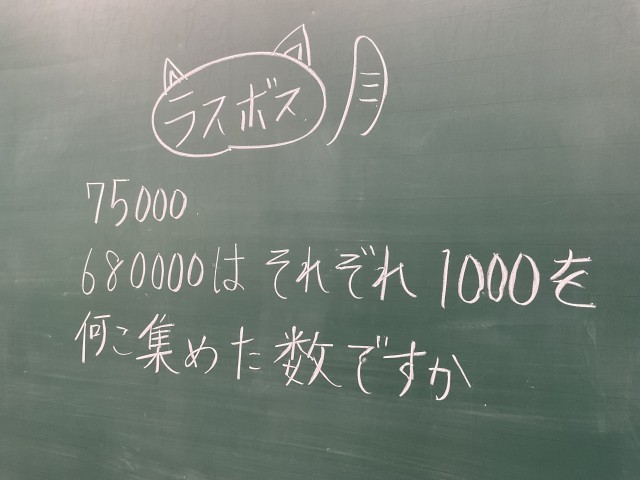 ラスボス
75000
680000はそれぞれ1000を
何こ集めた数ですか